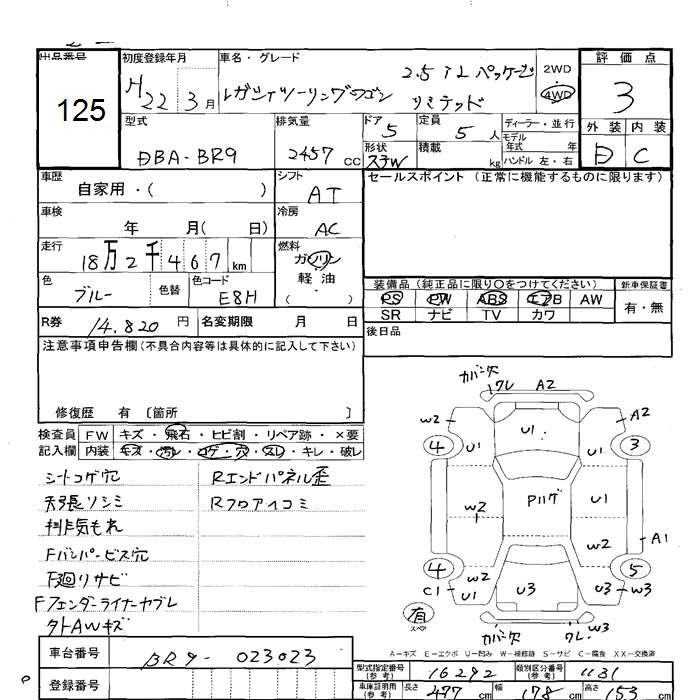 出品番号
125
初度登録年月
H22 3月
車名・グレード
2.5i Lパッケージ
レガシィツーリングワゴン リミテッド
2WD
4WD
評価点
3
外装 内装
D C
型式
DBA-BR9
排気量
2457 cc
ドア 5
形状
ステW
定員 5 人
積載 kg
ディーラー・並行
モデル
年式 年
ハンドル 左・右
車歴
自家用・( )
シフト
AT
セールスポイント (正常に機能するものに限ります)
車検
年 月( 日)
冷房
AC
走行
18万2千467 km
燃料
ガソリン
軽油
( )
色
ブルー
色替
色コード
E8H
装備品(純正品に限り○をつけてください)
PS PW ABS エアB AW
SR ナビ TV カワ
新車保証書
有・無
R券
14,820 円
名変期限 月 日
後日品
注意事項申告欄(不具合内容等は具体的に記入して下さい)
修復歴 有 〔箇所 〕
検査員
記入欄
FW キズ・飛石・ヒビ割・リペア跡・×要
内装 キズ・汚レ・コゲ・穴・スレ・キレ・破レ
シートコゲ穴
天張リシミ
排気もれ
Fバンパービス穴
下廻りサビ
Fフェンダーライナーヤブレ
タトAWキズ
Rエンドパネル歪
Rフロアヘコミ
カバー欠
ワレ A2
W2
A2
4
U1
U1
U1
3
W2
Pハゲ
U1
W2
A1
4
W2
C1
U1
U3
U3
W3
5
有
スペア
カバー欠
ワレ
W3
A-キズ E-エクボ U-凹み W-補修跡 S-サビ C-腐食 XX-交換済
車台番号
BR9-023023
登録番号
型式指定番号
(参考)
16292
類別区分番号
(参考)
1131
車庫証明用
(参考)
長さ 477 cm
幅 178 cm
高さ 153 cm